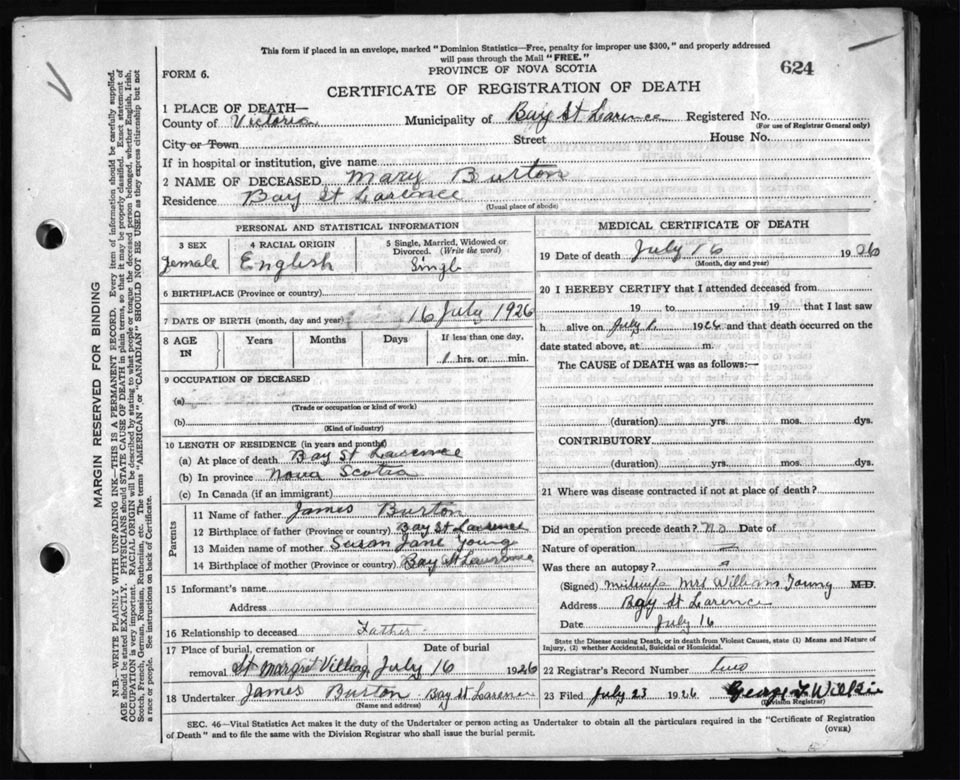 This form if placed in an envelope, marked "Dominion Statistics—Free, penalty for improper use $300," and properly addressed
will pass through the Mail "FREE."
624
FORM 6.
PROVINCE OF NOVA SCOTIA
CERTIFICATE OF REGISTRATION OF DEATH
1 PLACE OF DEATH—
County of Victoria Municipality of Bay St Larence Registered No.
(For use of Registrar General only)
City or Town Street House No.
If in hospital or institution, give name
2 NAME OF DECEASED Mary Burton
Residence Bay St Larence
(Usual place of abode)
PERSONAL AND STATISTICAL INFORMATION
3 SEX 4 RACIAL ORIGIN 5 Single, Married, Widowed or
Divorced. (Write the word)
female English Single
6 BIRTHPLACE (Province or country)
7 DATE OF BIRTH (month, day and year) 16 July 1926
8 AGE IN Years Months Days If less than one day,
1 hrs. or min.
9 OCCUPATION OF DECEASED
(a)
(Trade or occupation or kind of work)
(b)
(Kind of industry)
10 LENGTH OF RESIDENCE (in years and months)
(a) At place of death Bay St Lawrence
(b) In province Nova Scotia
(c) In Canada (if an immigrant)
Parents
11 Name of father James Burton
12 Birthplace of father (Province or country) Bay St Lawrence
13 Maiden name of mother Susan Jane Young
14 Birthplace of mother (Province or country) Bay St Lawrence
15 Informant's name
Address
16 Relationship to deceased Father
17 Place of burial, cremation or Date of burial
removal St Margret Village July 16 1926
18 Undertaker James Burton Bay St Larence
(Name and address)
MEDICAL CERTIFICATE OF DEATH
19 Date of death July 16 1926
(Month, day and year)
20 I HEREBY CERTIFY that I attended deceased from
19 to 19 that I last saw
h alive on July 1926 and that death occurred on the
date stated above, at m.
The CAUSE of DEATH was as follows:—
(duration) yrs. mos. dys.
CONTRIBUTORY
(duration) yrs. mos. dys.
21 Where was disease contracted if not at place of death?
Did an operation precede death? no Date of
Nature of operation
Was there an autopsy?
(Signed) Mrs William Young M.D.
Address Bay St Larence
Date July 16
State the Disease causing Death, or in death from Violent Causes, state (1) Means and Nature of
Injury, (2) whether Accidental, Suicidal or Homicidal.
22 Registrar's Record Number two
23 Filed July 23 1926 George Wilkie
(Division Registrar)
SEC. 46—Vital Statistics Act makes it the duty of the Undertaker or person acting as Undertaker to obtain all the particulars required in the "Certificate of Registration
of Death" and to file the same with the Division Registrar who shall issue the burial permit.
(OVER)
MARGIN RESERVED FOR BINDING
N.B.—WRITE PLAINLY WITH UNFADING INK—THIS IS A PERMANENT RECORD. Every item of information should be carefully supplied.
AGE should be stated EXACTLY. PHYSICIANS should STATE CAUSE OF DEATH in plain terms, so that it may be properly classified. Exact statement of
OCCUPATION is very important. RACIAL ORIGIN will be described by stating to what people or tongue the deceased person belonged, whether English, Irish,
Scotch, French, German, Russian, Ruthenian, etc. The terms "AMERICAN" or "CANADIAN" SHOULD NOT BE USED as they express citizenship but not
a race or people. See instructions on back of Certificate.